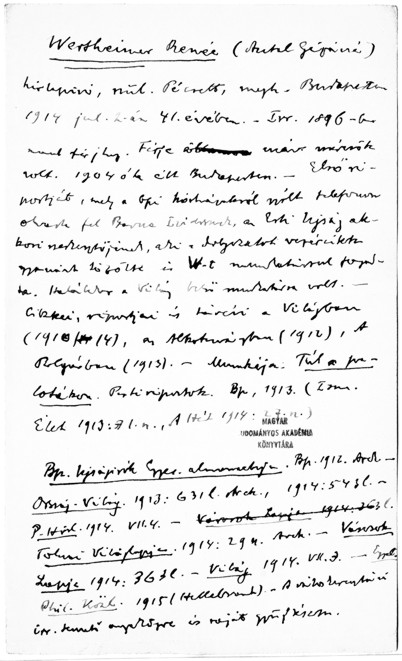 Wertheimer Renée (Antal Gézáné)
hírlapíró, szül. Pécsett, megh. Budapesten
1914 júl. 2-án 41. évében. – Irr. 1896-ban
ment férjhez. Férje
volt. 1904 óta élt Budapesten. – Első ri-
portját, mely a bpi szólt telefonon
olvasta fel Barna Izidornak, az Esti Újság ak-
kori szerkesztőjének, aki a dolgozatot vezércikk
gyanánt közölte és W-t munkatársul fogad-
ta. Halálakor a Világ belső munkatársa volt. –
Cikkei, riportjai és tárcái a Világban
(1910 14), az Alkotmányban (1912), A
Polgárban (1913). – Munkája: Túl a pa-
lotákon. Pesti riportok. Bp, 1913. (Ism.
Élet 1913: 71. n., A Hét 1914: 27. n.)
MAGYAR
TUDOMÁNYOS AKADÉMIA
KÖNYVTÁRA
Bp. Ujságírók Egyes. almanachja. Bp. 1912. Arck. –
Ország-Világ. 1913: 631 l. Arck., 1914: 543 l. –
P. Hírl. 1914. VII. 4. – Városok Lapja 1914: 363 l.
Tolnai Világlapja. 1914: 29 n. Arck. – Városok
Lapja 1914: 363 l. – Világ 1914. VII. 3. – Egyet.
Phil. Közl. 1915 (Hellebrant). – A
izr. temető anyakönyve és saját gyűjtésem.